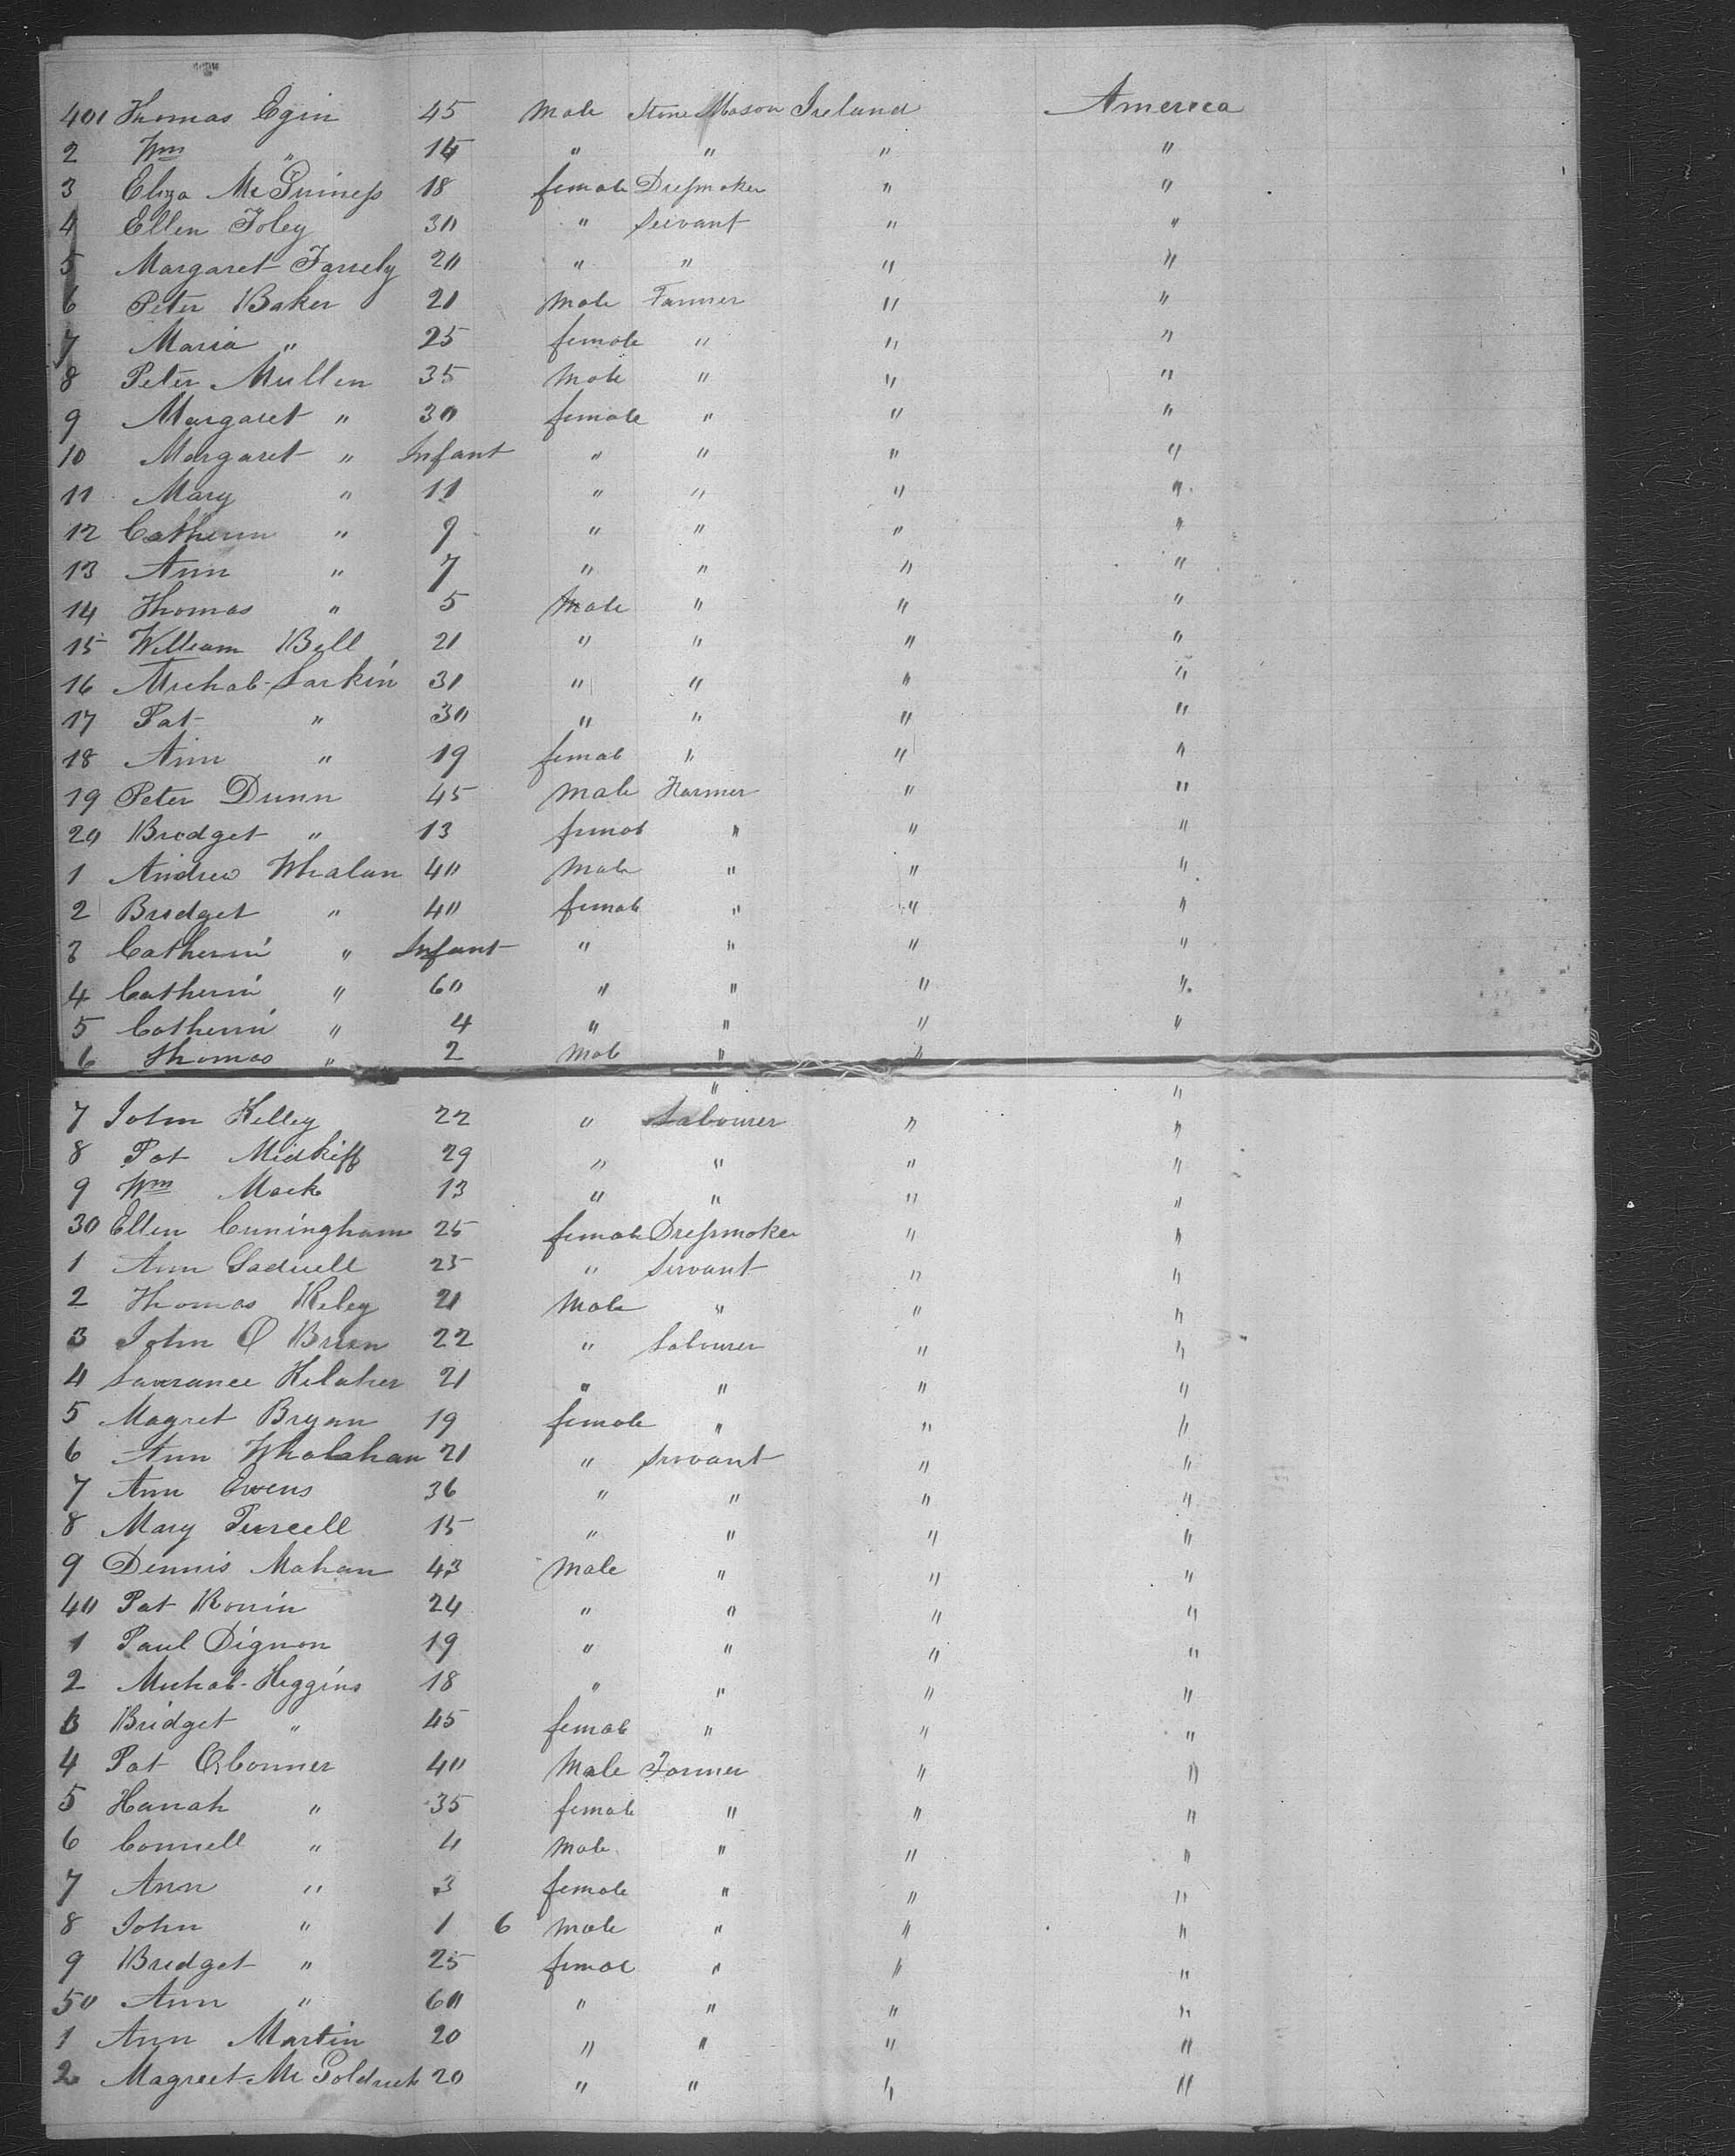 401 Thomas Egin 45 Male Stone Mason Ireland America
2 Wm " 14 " " " "
3 Eliza McGuiness 18 female Dressmaker " "
4 Ellen Foley 30 " Servant " "
5 Margaret Farrely 20 " " " "
6 Peter Baker 21 Male Farmer " "
7 Maria " 25 female " " "
8 Peter Mullen 35 Male " " "
9 Margaret " 30 female " " "
10 Margaret " Infant " " " "
11 Mary " 11 " " " "
12 Catherin " 9 " " " "
13 Ann " 7 " " " "
14 Thomas " 5 Male " " "
15 William Bell 21 " " " "
16 Michal Larkin 31 " " " "
17 Pat " 30 " " " "
18 Ann " 19 female " " "
19 Peter Dunn 45 Male Farmer " "
20 Bridget " 13 female " " "
1 Andrew Whalan 40 Male " " "
2 Bridget " 40 female " " "
3 Catherin " Infant " " " "
4 Catherin " 60 " " " "
5 Catherin " 4 " " " "
6 Thomas " 2 Male " " "
" "
7 John Kelley 22 " Labourer " "
8 Pat Midkiff 29 " " " "
9 Wm Mack 13 " " " "
30 Ellen Cuningham 25 female Dressmaker " "
1 Ann 25 " Servant " "
2 Thomas Reley 21 Male " " "
3 John O Brien 22 " Labourer " "
4 Lawrance Kelaher 21 " " " "
5 Magret Bryan 19 female " " "
6 Ann Whalahan 21 " Servant " "
7 Ann Owens 36 " " " "
8 Mary Purcell 15 " " " "
9 Dennis Mahan 43 Male " " "
40 Pat Ronin 24 " " " "
1 Paul Dignon 19 " " " "
2 Michal Higgins 18 " " " "
3 Bridget " 45 female " " "
4 Pat OConner 40 Male Farmer " "
5 Hanah " 35 female " " "
6 Connell " 4 Male " " "
7 Ann " 3 female " " "
8 John " 1 6 Male " " "
9 Bridget " 25 female " " "
50 Ann " 60 " " " "
1 Ann Martin 20 " " " "
2 Magreet McGoldrick 20 " " " "